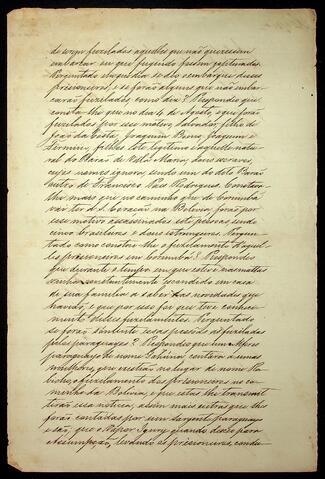 de serem fuzilados aquelles que não quizessem
embarcar ou que fugindo fossem capturados.
Perguntado em que dia se deu o embarque desses
prisioneiros, e se forão alguns que não embar
carão fuzilados como dia? Respondeo que
consta-lhe que no dia de Agosto, e que forão
fuzilados por esse motivo Salvador, filho de
João da Costa, Joaquim Joaquim e
Firmino, filhos este legitimo e aquelle natu-
ral do Barão de Villa Maria, dous escravos,
cujos nomes ignora, sendo um do dito Barão
outro de Francisco Paes Rodrigues. Consta-
lhe mais que no caminho que de Corumbá
vai ter a Coração na Bolivia, forão por
esse motivo assassinadas sete pessoas sendo
cinco brasileiros e dous estrangeiros. Pergun-
tado como consta-lhe o fuzilamento d'aquel-
les prisioneiros em Corumbá? Respondeo
que durante o tempo em que esteve nas mattas
constantemente mandando em casa
de sua familia a saber das novidades que
havião, e que por isso foi que teve conheci-
mento desses fuzilamentos. Perguntado
se forão sómente essas pessoas as fuziladas
pelos paraguayos? Respondeo que um Alferes
paraguayo de nome contara a umas
mulheres, que existião no lugar de nome
o fuzilamento dos prisioneiros no ca-
minho da Bolivia, e que estas lhe transmit-
tirão essa noticia, alem mais outras que lhe
forão contadas por um Sargento paraguayo
e são, que o Vapor Igurey quando desceo para
Assumpção, levando os prisioneiros, condu-